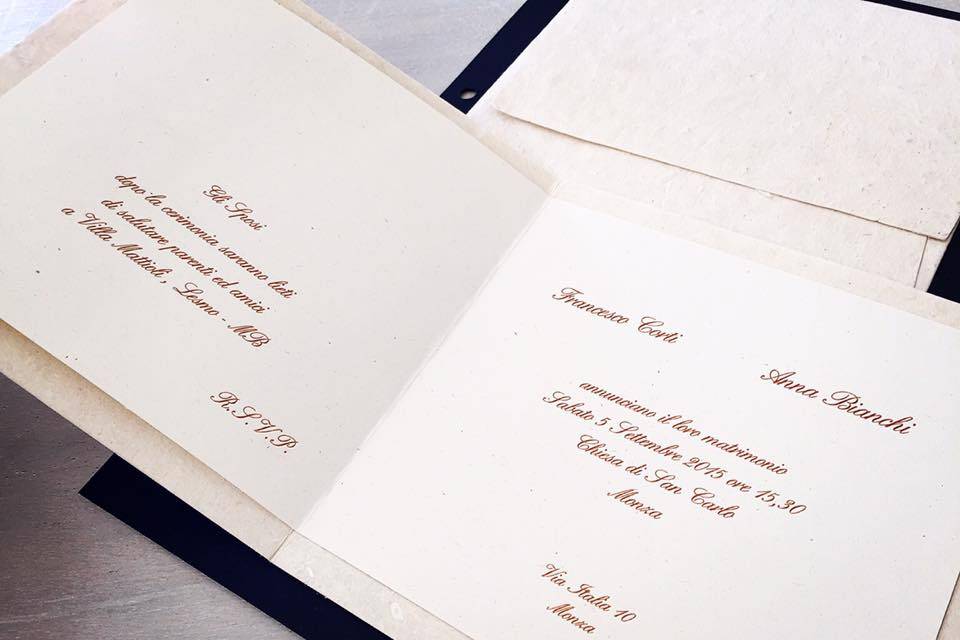 Gli Sposi
dopo la cerimonia saranno lieti
di salutare parenti ed amici
a Villa Mattioli, Lesmo - MB
R.S.V.P.
Francesco Corti
Anna Bianchi
annunciano il loro matrimonio
Sabato 5 Settembre 2015 ore 15,30
Chiesa di San Carlo
Monza
Via Italia 10
Monza